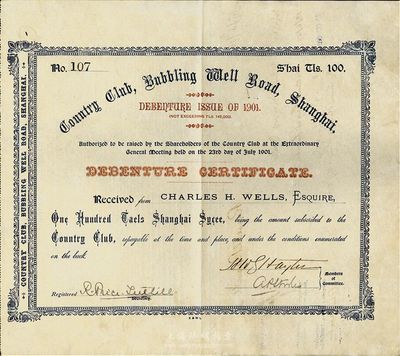 No. 107
S'hai Tls. 100.
Country Club, Bubbling Well Road, Shanghai.
DEBENTURE ISSUE OF 1901.
Authorized to be raised by the Shareholders of the Country Club at the Extraordinary
General Meeting held on the 23rd day of July 1901.
DEBENTURE CERTIFICATE.
Received from CHARLES H. WELLS, ESQUIRE,
One Hundred Taels Shanghai Sycee, being the amount subscribed to the
Country Club, repayable at the time and place, and under the conditions enumerated
on the back.
Members
of
Committee.
Registered
Secretary.
COUNTRY CLUB, BUBBLING WELL ROAD, SHANGHAI.